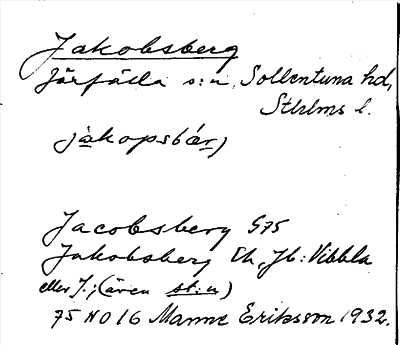 Jakobsberg
Järfälla s:n, Sollentuna hd,
Sthlms l.
jakopsbár)
Jacobsberg G75
Jakobsberg Eh, Jb: Vibbla
eller J.; (även st:n)
75 H016 Manne Eriksson 1932.